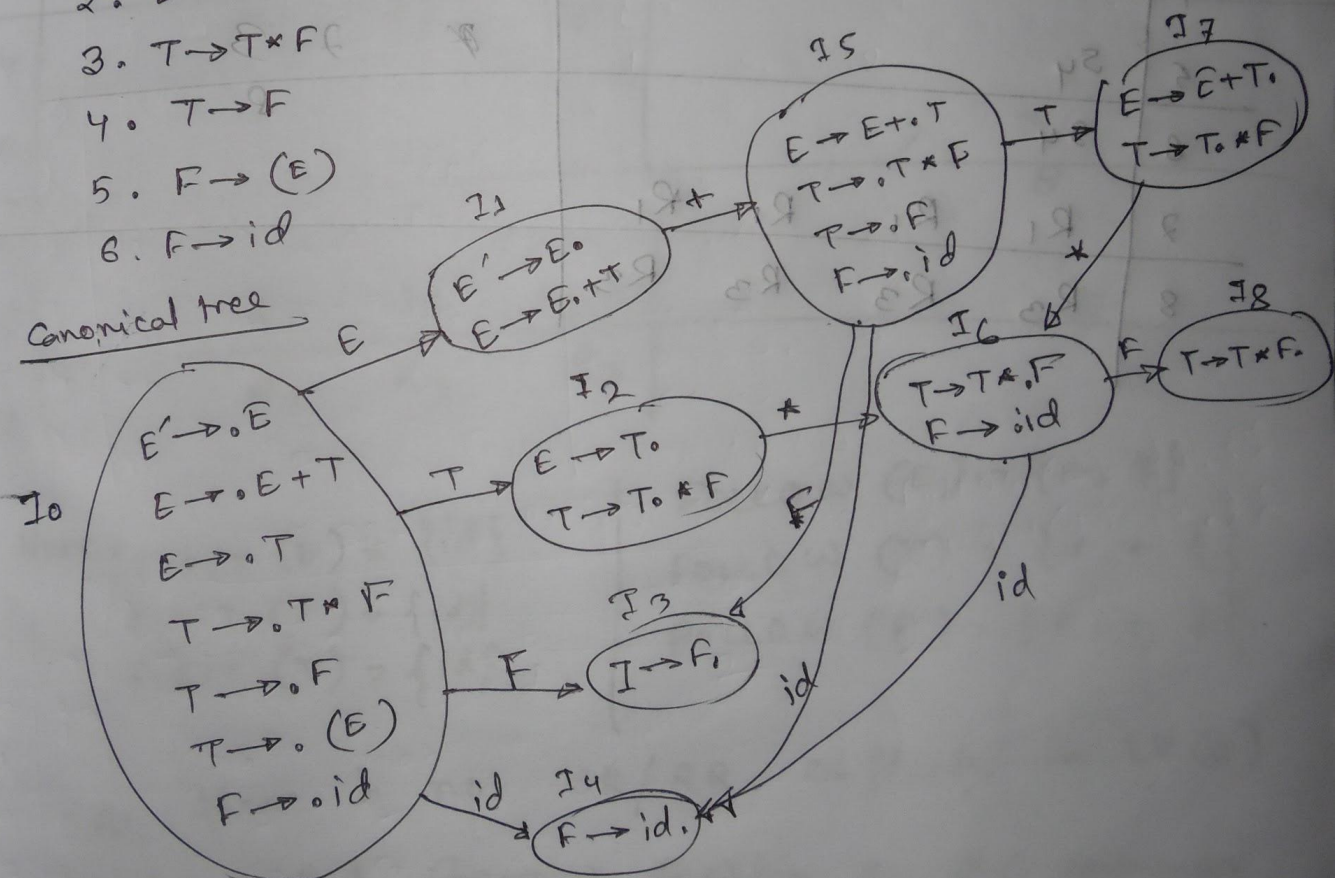 2.
3. T → T * F
4. T → F
5. F → (E)
6. F → id
Canonical tree
I0
E' → .E
E → .E + T
E → .T
T → .T * F
T → .F
T → .(E)
F → .id
E
I1
E' → E.
E → E.+T
+
T
I2
E → T.
T → T. * F
*
F
I3
I → F.
id
I4
F → id.
I5
E → E+.T
T → .T * F
T → .F
F → .id
T
I7
E → E+T.
T → T. * F
*
I6
T → T*.F
F → .id
F
I8
T → T*F.
F
id
id